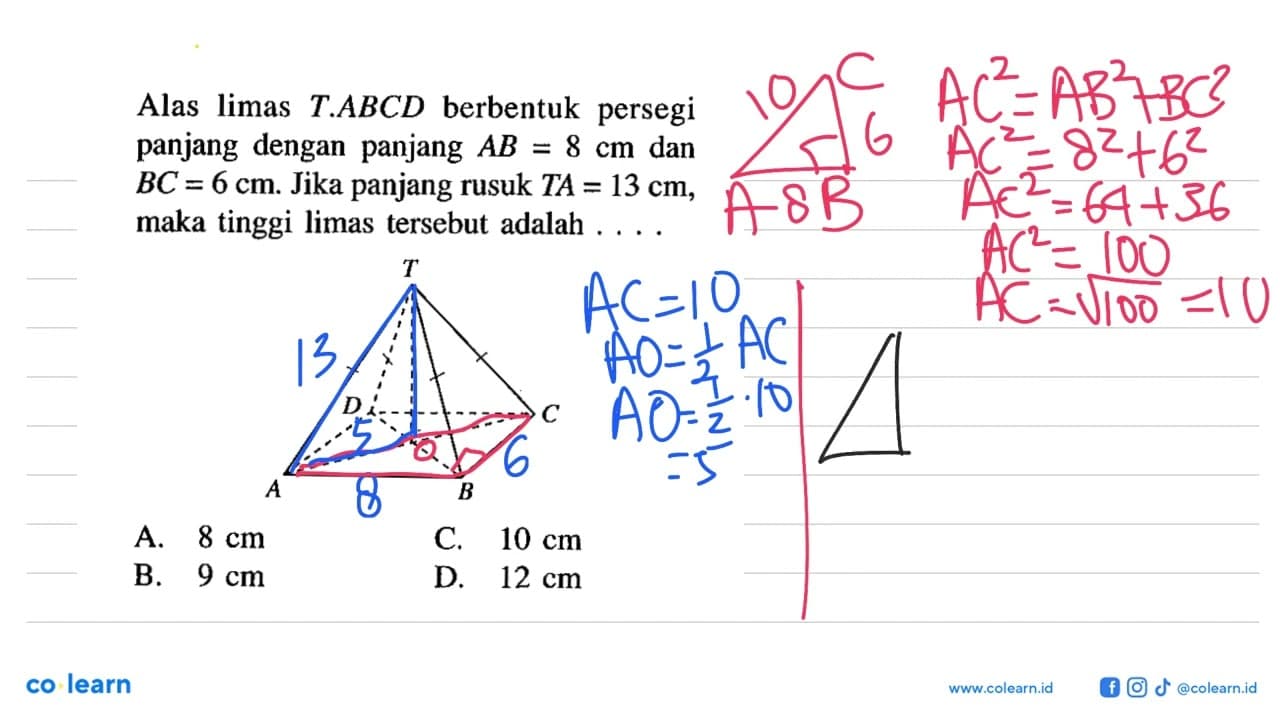 Alas limas T.ABCD berbentuk persegi
panjang dengan panjang AB = 8 cm dan
BC = 6 cm. Jika panjang rusuk TA = 13 cm,
maka tinggi limas tersebut adalah . . . .
T
13
D
C
5
O
6
A
8
B
A. 8 cm
B. 9 cm
C. 10 cm
D. 12 cm
AC=10
AO=1/2 AC
AO=1/2 · 10
=5
10
C
6
A 8 B
AC²=AB²+BC²
AC²=8²+6²
AC²=64+36
AC²=100
AC=√100=10
co learn
www.colearn.id
@colearn.id